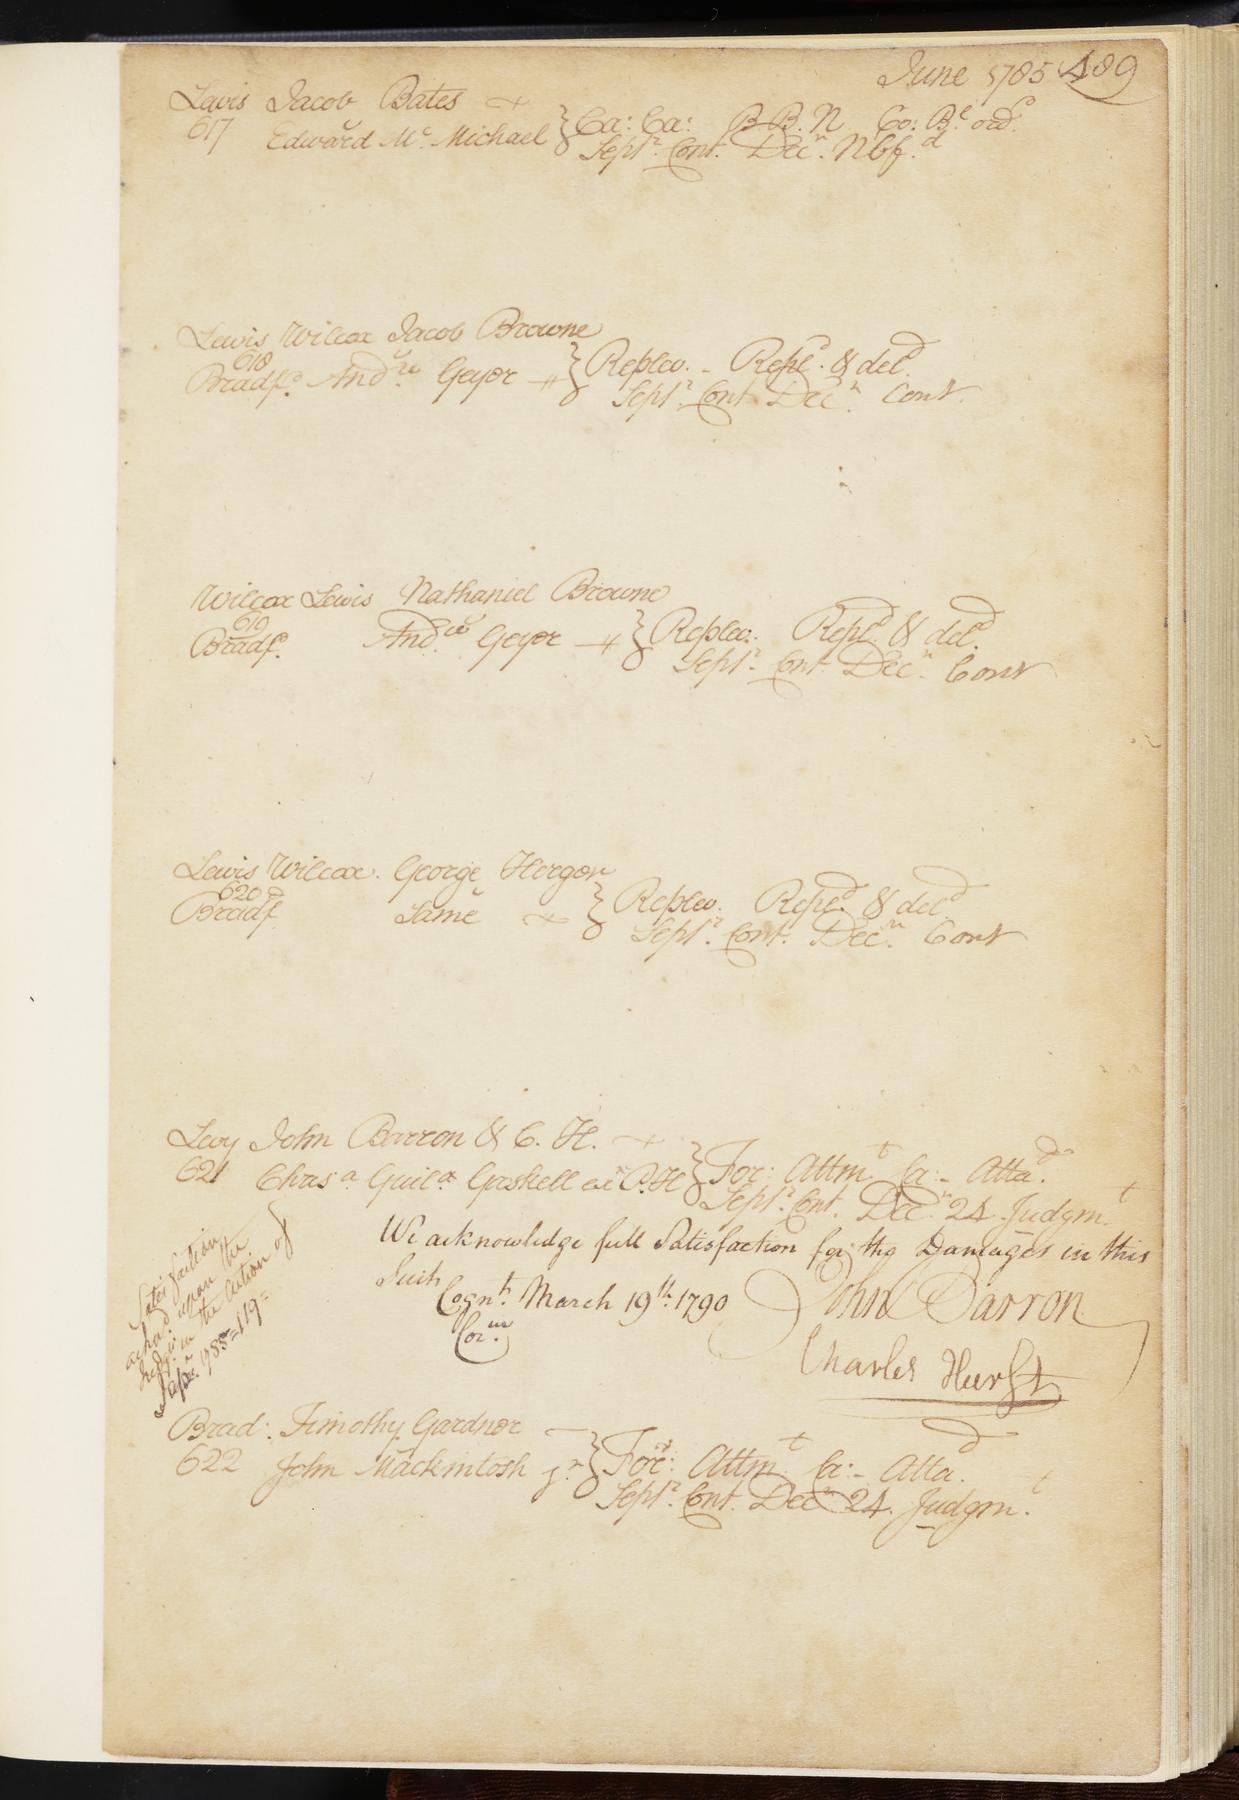 June 1785 489
Lewis Jacob Bates
617 Edward Mc. Michael } Ca: Ca: B. B. N Co: Bl ord
Septr. Cont. Decr. Nbf.d
Lewis Wilcox Jacob Browne
618
Bradfd. Andw. Geyer } Replev. - Repld. & deld.
Septr. Cont Decr. Cont.
Wilcox Lewis Nathaniel Browne
619
Bradf. Andw. Geyer } Replev. Repld. & deld.
Septr. Cont Decr. Cont
Lewis Wilcox. George Horgon
620
Bradfd. Same } Replev. Repld. & deld.
Septr. Cont. Decr. Cont
Levy John Barron & C. H.
621 Chrisa Guila Gaskell P. H } For: Attmt. Ca: - Attad.
Septr. Cont. Decr 24. Judgmt.
We acknowledge full Satisfaction for the Damages in this
Suit
Cognt. March 19th. 1790 John Barron
Cor.m
Charles Hurst
Satisfaction
ackd. upon the
in the Action of
1785=119=
Brad: Timothy Gardner
622 John Mackintosh jr. } For: Attmt. Ca: - Attad.
Septr. Cont. Decr 24. Judgmt.